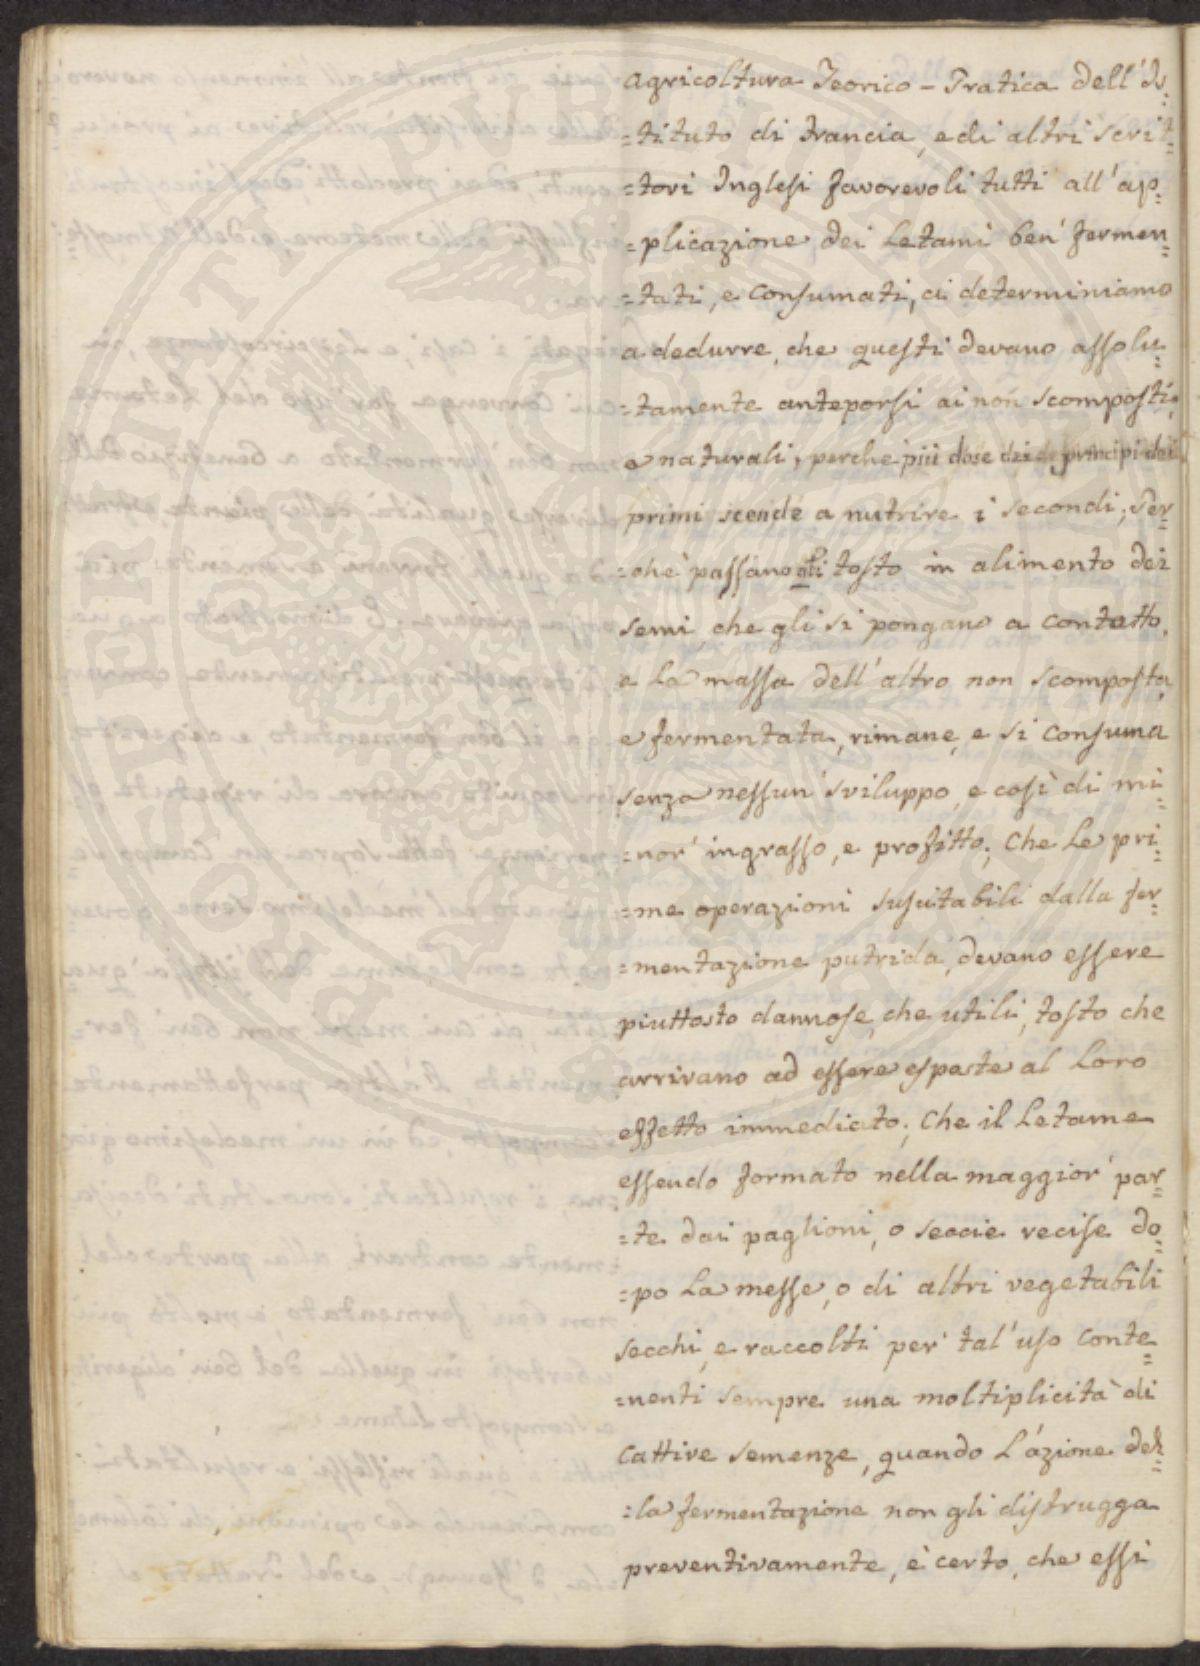 Agricoltura Teorico - Pratica dell'Is=
=tituto di Francia, e di altri scrit=
=tori Inglesi favorevoli tutti all'ap=
=plicazione dei Letami ben' fermen=
=tati, e consumati, ci determiniamo
a dedurre, che questi devano assolu=
=tamente anteporsi ai non scomposti,
e naturali, perchè più dose dei principi dei
primi scende a nutrire i secondi, Per=
=chè passano gli tosto in alimento dei
semi, che gli si pongano a contatto,
e la massa dell'altro non scomposta,
e fermentata, rimane, e si consuma
senza nessun' sviluppo, e così di mi=
=nor' ingrasso, e profitto; Che le pri=
=me operazioni suscitabili dalla fer=
=mentazione putrida, devano essere
piuttosto dannose, che utili, tosto che
arrivano ad essere esposte al loro
effetto immediato; Che il Letame
essendo formato nella maggior' par=
=te dai paglioni, o seccie recise do=
=po la messe, o di altri vegetabili
secchi, e raccolti per' tal'uso conte=
=nenti sempre una moltiplicità di
cattive semenze, quando l'azione del=
=la fermentazione non gli distrugga
preventivamente, è certo, che essi